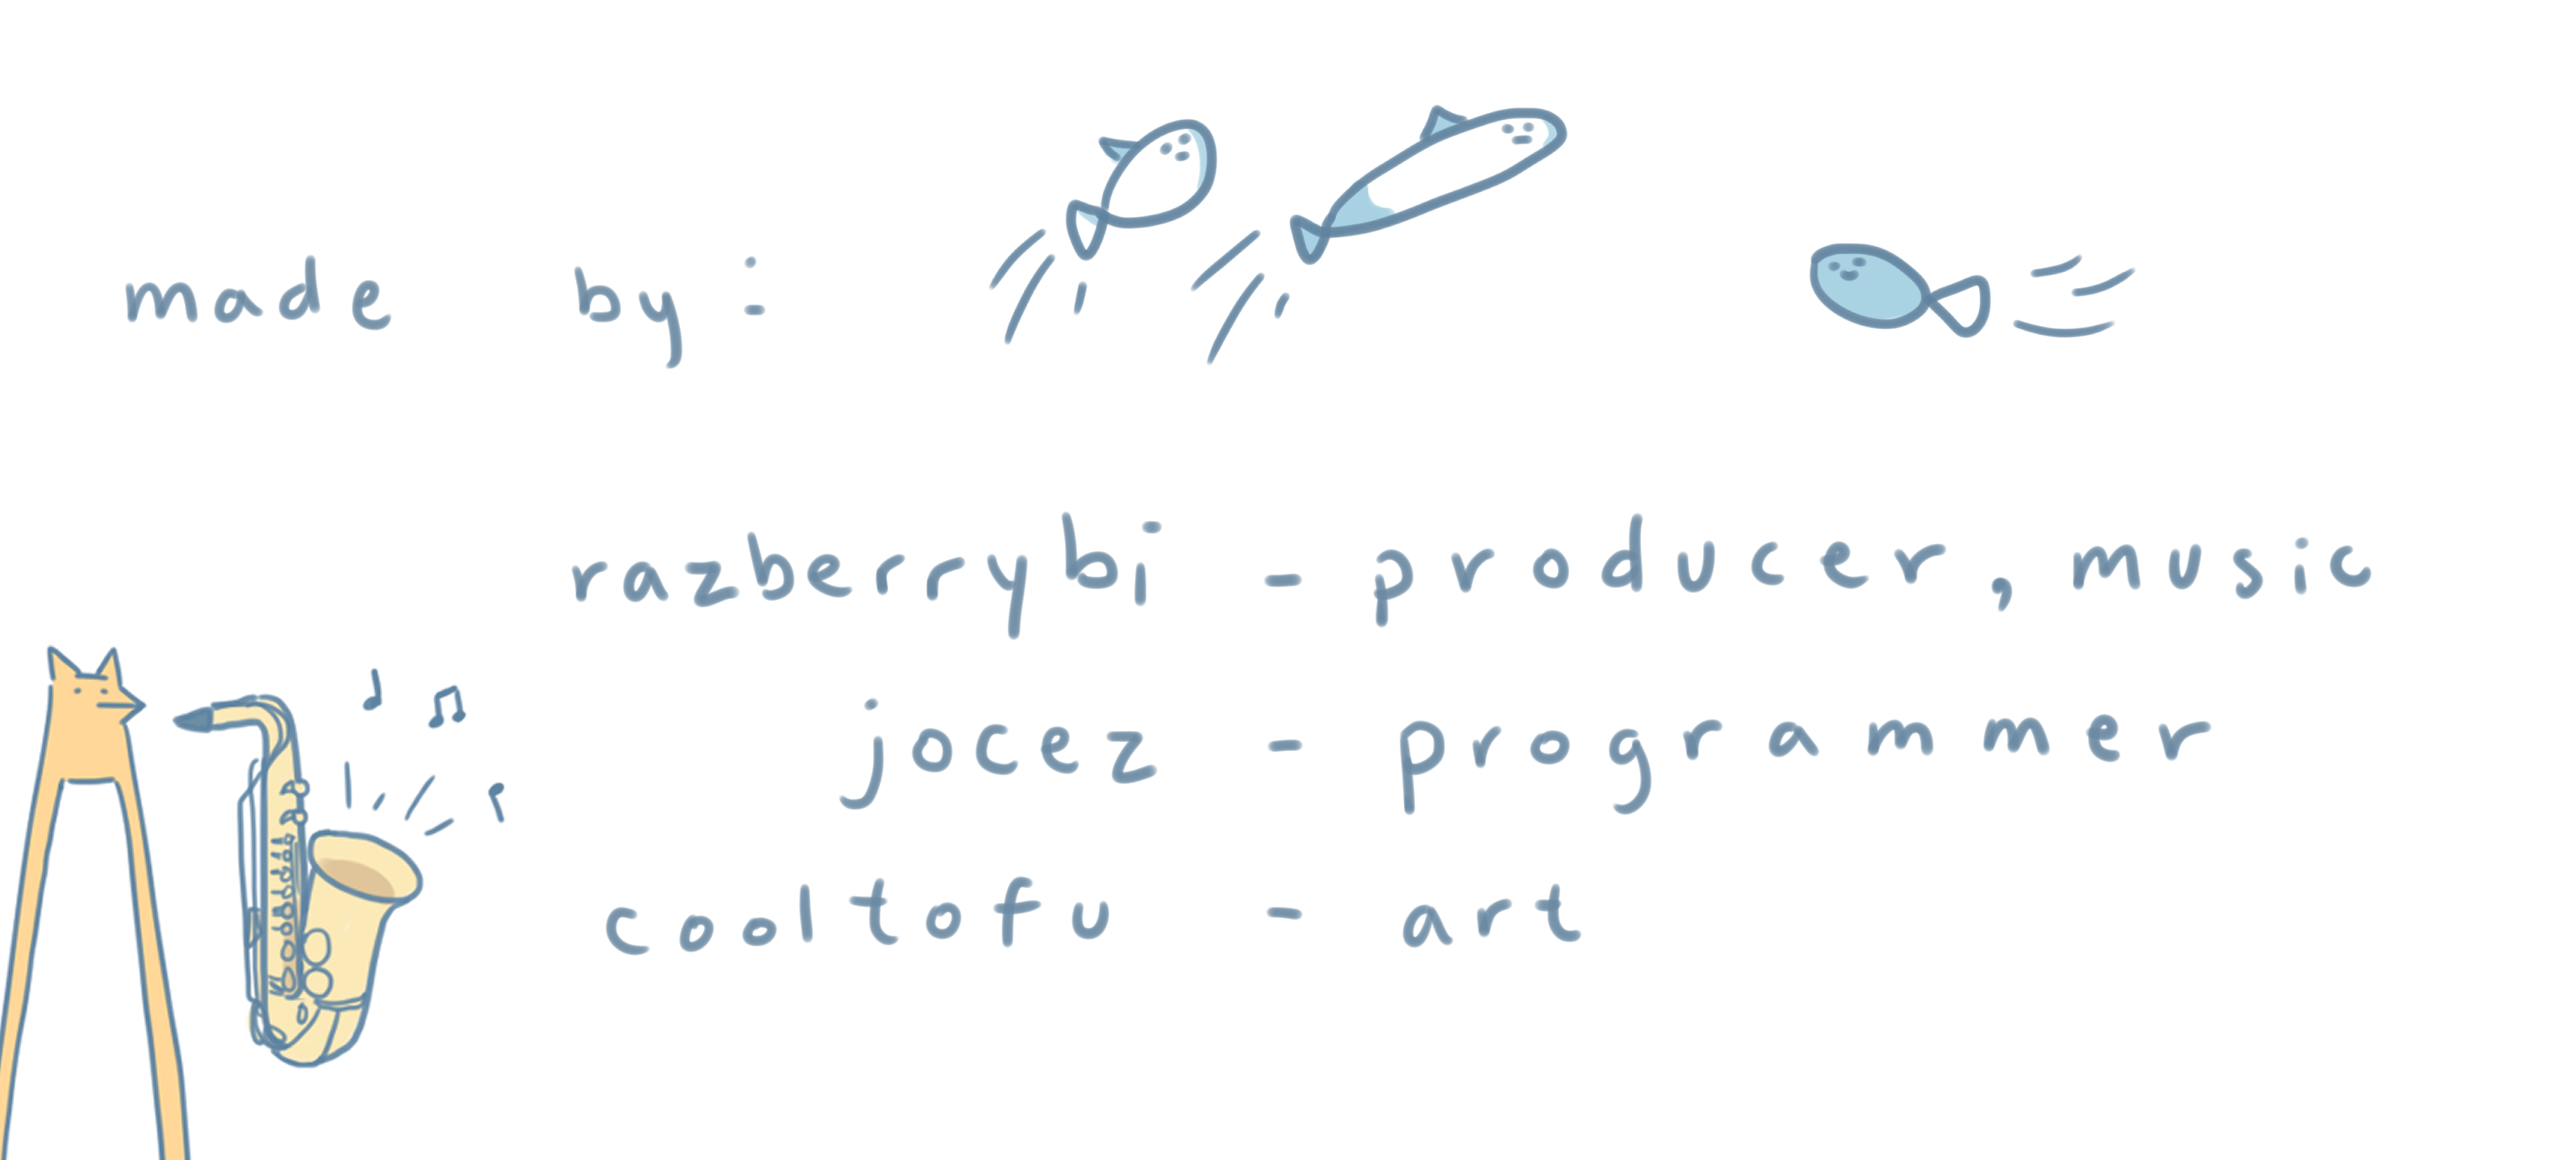 made by:
razberrybi - producer, music
jocez - programmer
cooltofu - art